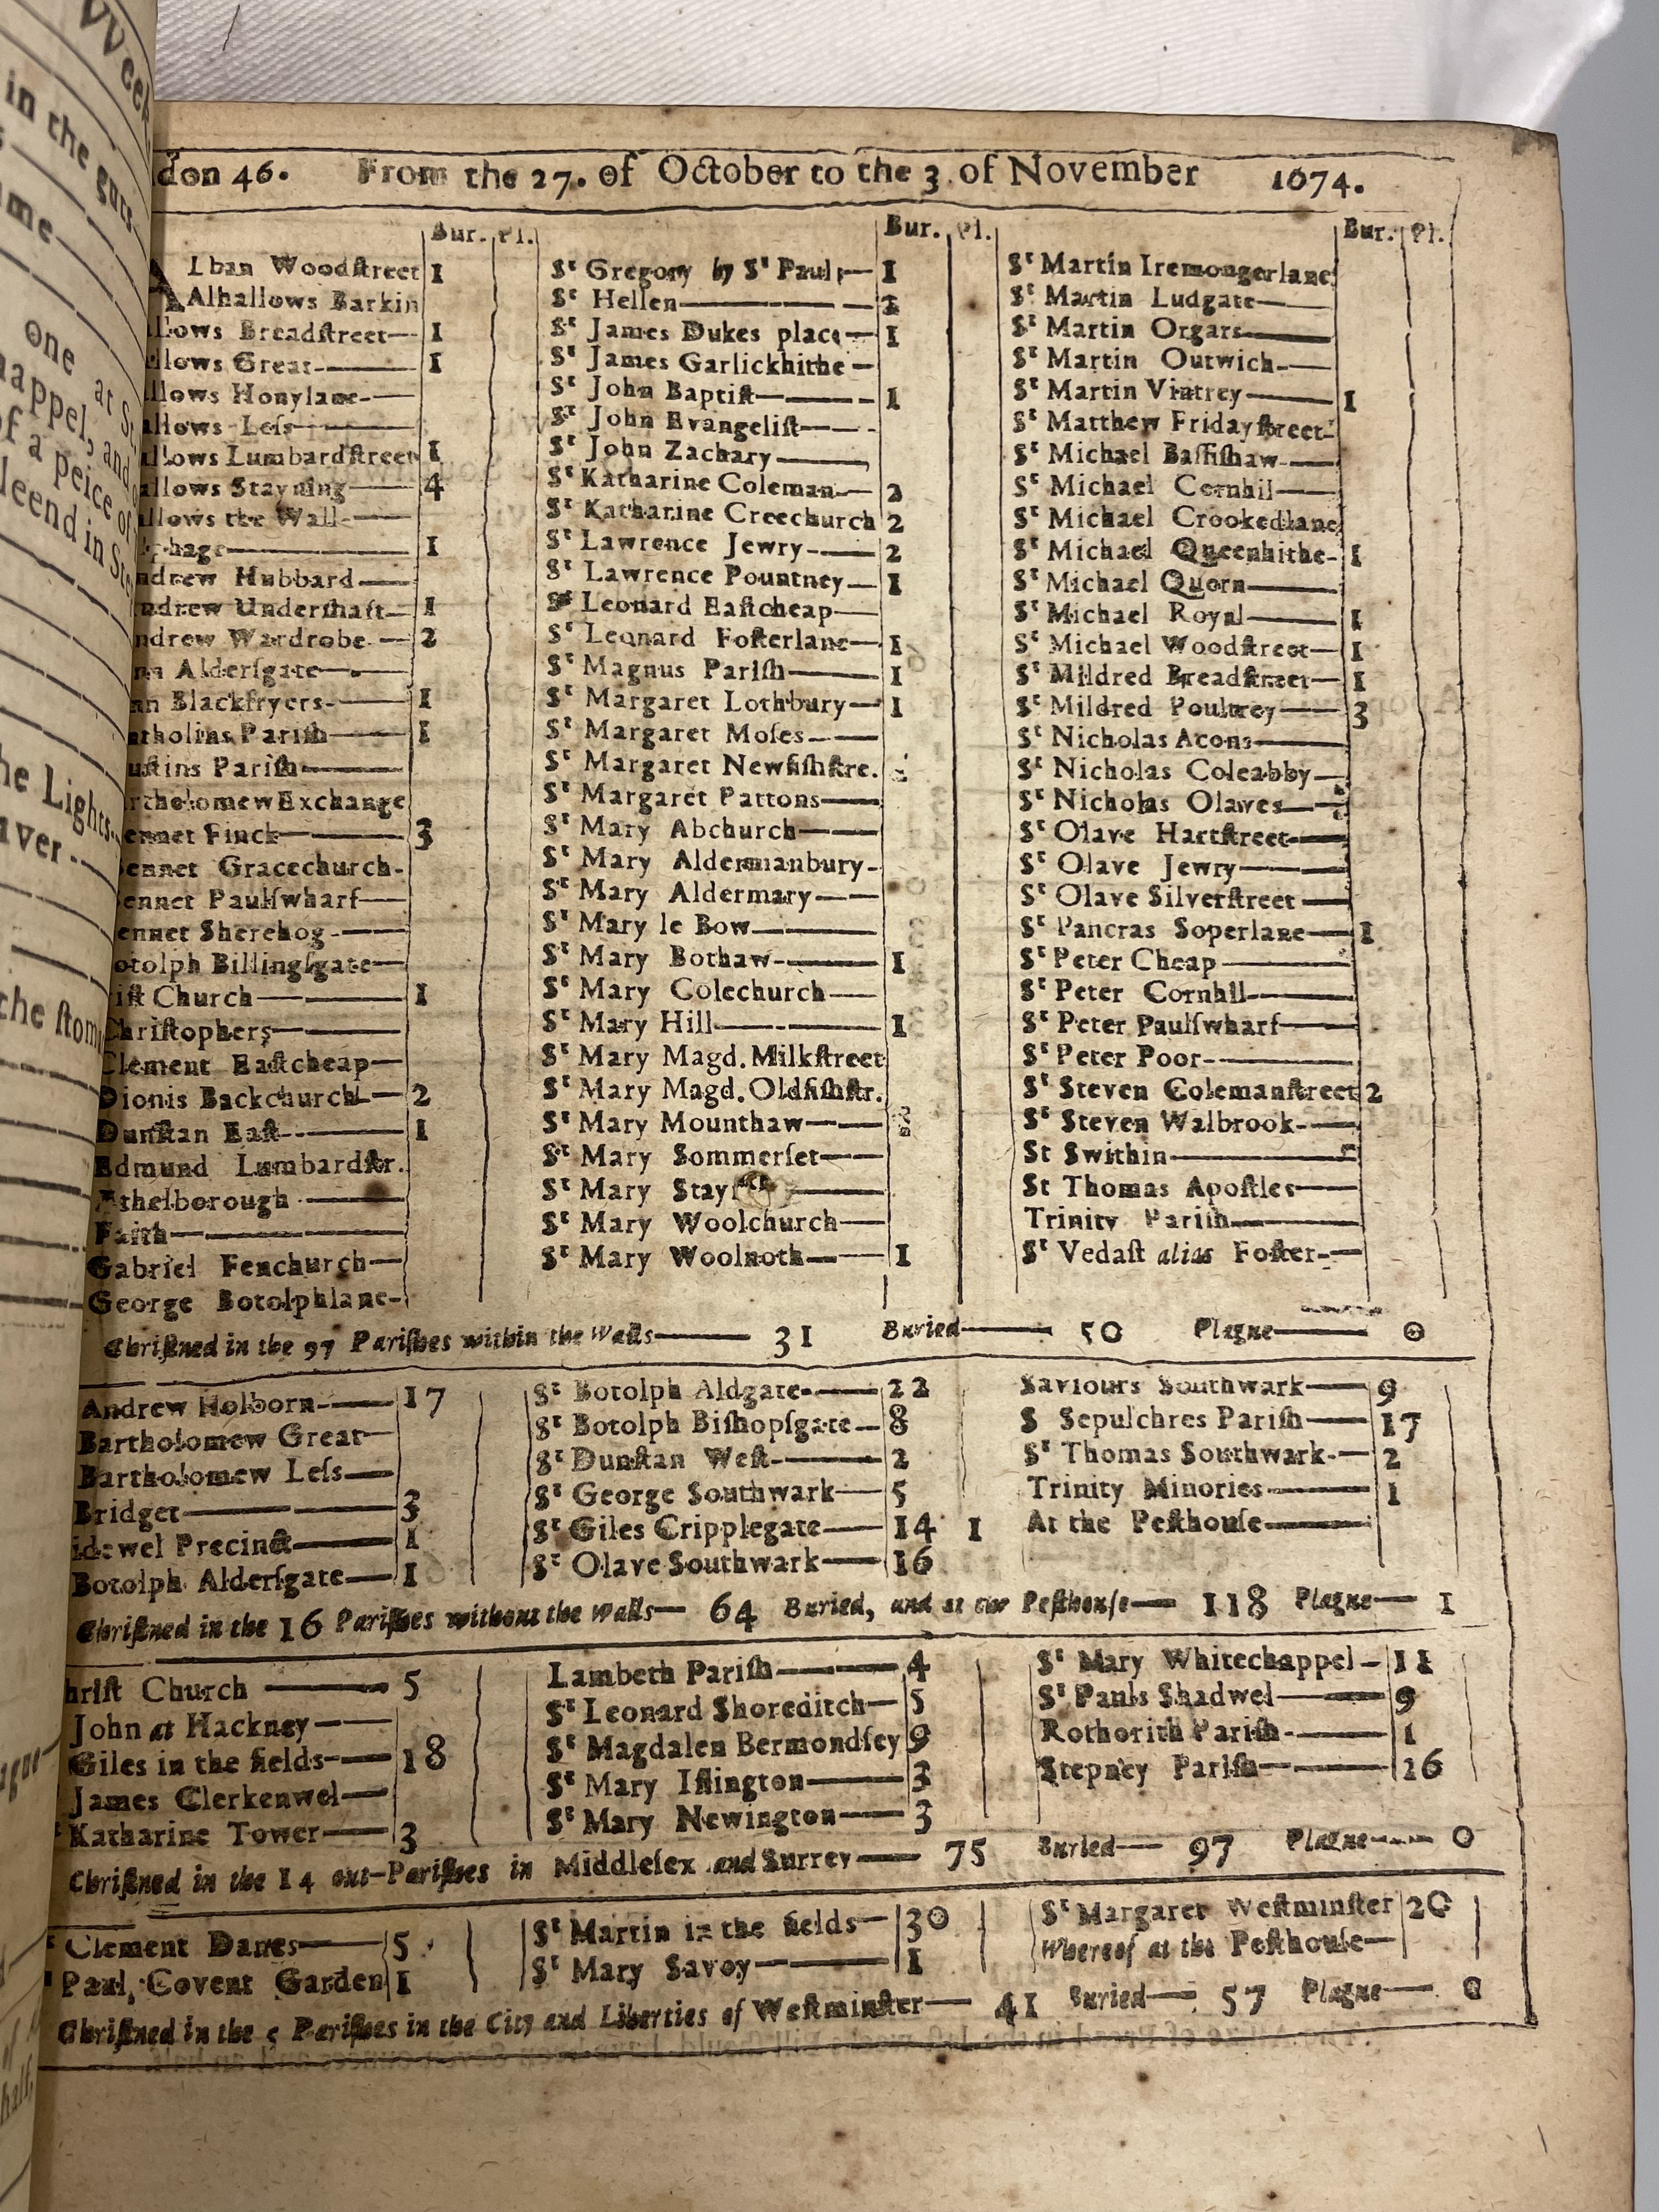 VVeek
in the guts
me
one at St
happel, and
of a peice of
leend in Ste
he Lights
ver
the stom
ague
of
half,
don 46. From the 27. of October to the 3 of November 1674.
Bur. Pl.
Lban Woodſtreet 1
Alhallows Barkin
llows Breadſtreet 1
llows Great 1
llows Honylane
allows Leſs
llows Lumbardſtreet 1
allows Stayning 4
llows the Wall
phage 1
ndrew Hubbard
ndrew Underſhaft 1
ndrew Wardrobe 2
nn Alderſgate
nn Blackfryers 1
tholins Pariſh 1
uſtins Pariſh
rtholomew Exchange
ennet Finck 3
ennet Gracechurch
ennet Paulſwharf
ennet Sherehog
otolph Billingſgate
iſt Church 1
Chriſtophers
Clement Eaſtcheap
Dionis Backchurch 2
Dunſtan Eaſt 1
Edmund Lumbardſtr.
Ethelborough
Faith
Gabriel Fenchurch
George Botolphlane
Bur. Pl.
St Gregory by St Pauls 1
St Hellen 2
St James Dukes place 1
St James Garlickhithe
St John Baptiſt 1
St John Evangeliſt
St John Zachary
St Katharine Coleman 2
St Katharine Creechurch 2
St Lawrence Jewry 2
St Lawrence Pountney 1
St Leonard Eaſtcheap
St Leonard Foſterlane 1
St Magnus Pariſh 1
St Margaret Lothbury 1
St Margaret Moſes
St Margaret Newfiſhſtre.
St Margaret Pattons
St Mary Abchurch
St Mary Aldermanbury
St Mary Aldermary
St Mary le Bow
St Mary Bothaw 1
St Mary Colechurch
St Mary Hill 1
St Mary Magd. Milkſtreet
St Mary Magd. Oldfiſhſtr.
St Mary Mounthaw
St Mary Sommerſet
St Mary
St Mary Woolchurch
St Mary Woolnoth 1
Bur. Pl.
St Martin Iremongerlane
St Martin Ludgate
St Martin Orgars
St Martin Outwich
St Martin Vintrey 1
St Matthew Fridayſtreet
St Michael Baſſiſhaw
St Michael Cornhil
St Michael Crookedlane
St Michael Queenhithe 1
St Michael Quern
St Michael Royal 1
St Michael Woodſtreet 1
St Mildred Breadſtreet 1
St Mildred Poultrey 3
St Nicholas Acons
St Nicholas Coleabby
St Nicholas Olaves
St Olave Hartſtreet
St Olave Jewry
St Olave Silverſtreet
St Pancras Soperlane 1
St Peter Cheap
St Peter Cornhil
St Peter Paulſwharf
St Peter Poor
St Steven Colemanſtreet 2
St Steven Walbrook
St Swithin
St Thomas Apoſtles
Trinity Pariſh
St Vedaſt alias Foſter
Chriſtned in the 97 Pariſhes within the Walls 31 Buried 50 Plague 0
Andrew Holborn 17
Bartholomew Great
Bartholomew Leſs
Bridget 3
idewel Precinct 1
Botolph Alderſgate 1
St Botolph Aldgate 22
St Botolph Biſhopſgate 8
St Dunſtan Weſt 2
St George Southwark 5
St Giles Cripplegate 14 1
St Olave Southwark 16
Saviours Southwark 9
S Sepulchres Pariſh 17
St Thomas Southwark 2
Trinity Minories 1
At the Peſthouſe
Chriſtned in the 16 Pariſhes without the Walls 64 Buried, and at the Peſthouſe 118 Plague 1
hriſt Church 5
John at Hackney
Giles in the fields 18
James Clerkenwel
Katharine Tower 3
Lambeth Pariſh 4
St Leonard Shoreditch 5
St Magdalen Bermondſey 9
St Mary Iſlington 3
St Mary Newington 3
St Mary Whitechappel 11
St Pauls Shadwel 9
Rothorith Pariſh 1
Stepney Pariſh 26
Chriſtned in the 14 out-Pariſhes in Middleſex and Surrey 75 Buried 97 Plague 0
Clement Danes 5
Paul, Covent Garden 1
St Martin in the fields 30
St Mary Savoy 1
St Margaret Weſtminſter 20
Whereof at the Peſthouſe
Chriſtned in the 5 Pariſhes in the City and Liberties of Weſtminſter 41 Buried 57 Plague 0